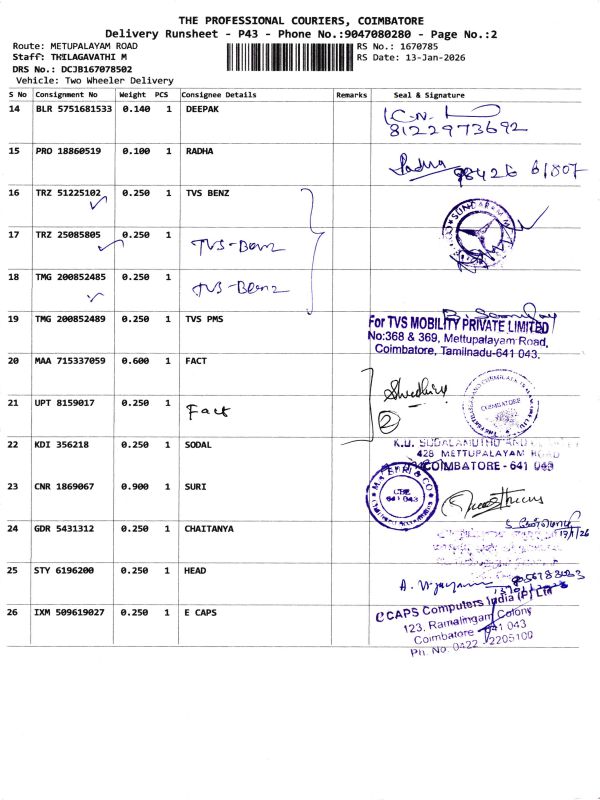 THE PROFESSIONAL COURIERS, COIMBATORE
Delivery Runsheet - P43 - Phone No.:9047080280 - Page No.:2
Route: METUPALAYAM ROAD
Staff: THILAGAVATHI M
DRS No.: DCJB167078502
Vehicle: Two Wheeler Delivery
RS No.: 1670785
RS Date: 13-Jan-2026
S No Consignment No Weight PCS Consignee Details Remarks Seal & Signature
14 BLR 5751681533 0.140 1 DEEPAK
8122973692
15 PRO 18860519 0.100 1 RADHA
Radha 98426 61807
16 TRZ 51225102 0.250 1 TVS BENZ
17 TRZ 25085805 0.250 1 TVS-Benz
18 TMG 200852485 0.250 1 TVS-Benz
19 TMG 200852489 0.250 1 TVS PMS
For TVS MOBILITY PRIVATE LIMITED
No:368 & 369, Mettupalayam Road,
Coimbatore, Tamilnadu-641 043.
20 MAA 715337059 0.600 1 FACT
21 UPT 8159017 0.250 1 Fact
2
COIMBATORE
22 KDI 356218 0.250 1 SODAL
428 METTUPALAYAM ROAD
COIMBATORE - 641 043
23 CNR 1869067 0.900 1 SURI
CBE
641 043
24 GDR 5431312 0.250 1 CHAITANYA
25 STY 6196200 0.250 1 HEAD
26 IXM 509619027 0.250 1 E CAPS
eCAPS Computers India (P) Ltd
123, Ramalingam Colony
Coimbatore - 641 043
Ph. No. 0422 - 2205100